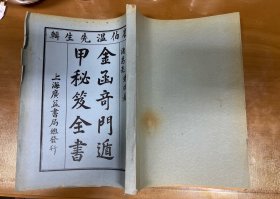 伯温先生輯
金函奇門遁
甲秘笈全書
上海廣益書局發行